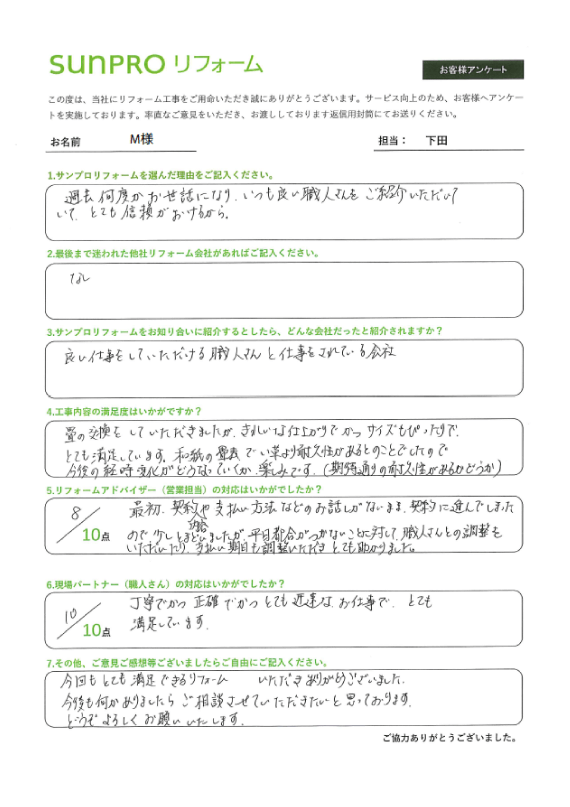 SUNPRO リフォーム
お客様アンケート
この度は、当社にリフォーム工事をご用命いただき誠にありがとうございます。サービス向上のため、お客様へアンケー
トを実施しております。率直なご意見をいただき、お渡ししております返信用封筒にてお送りください。
お名前 M様
担当： 下田
1.サンプロリフォームを選んだ理由をご記入ください。
過去何度かお世話になり、いつも良い職人さんをご紹介いただいて
いて、とても信頼がおけるから。
2.最後まで迷われた他社リフォーム会社があればご記入ください。
なし
3.サンプロリフォームをお知り合いに紹介するとしたら、どんな会社だったと紹介されますか？
良い仕事をしていただける職人さんと仕事をされている会社
4.工事内容の満足度はいかがですか？
畳の交換をしていただきましたが、きれいな仕上がりでかつサイズもぴったりで、
とても満足しています。和紙の畳表でい草より耐久性があるとのことでしたので
今後の経時変化がどうなっていくか楽しみです。(期待通りの耐久性があるかどうか)
5.リフォームアドバイザー（営業担当）の対応はいかがでしたか？
8/10点
最初、契約や支払い方法などのお話しがないまま、契約に進んでしまった
ので少しとまどいましたが、平日都合がつかないことに対して、職人さんとの調整を
いただいたり、支払い期日も調整いただきとても助かりました。
6.現場パートナー（職人さん）の対応はいかがでしたか？
10/10点
丁寧でかつ正確でかつとても迅速なお仕事で、とても
満足しています。
7.その他、ご意見ご感想等ございましたらご自由にご記入ください。
今回もとても満足できるリフォーム いただきありがとうございました。
今後も何かありましたらご相談させていただきたいと思っております。
どうぞよろしくお願いいたします。
ご協力ありがとうございました。